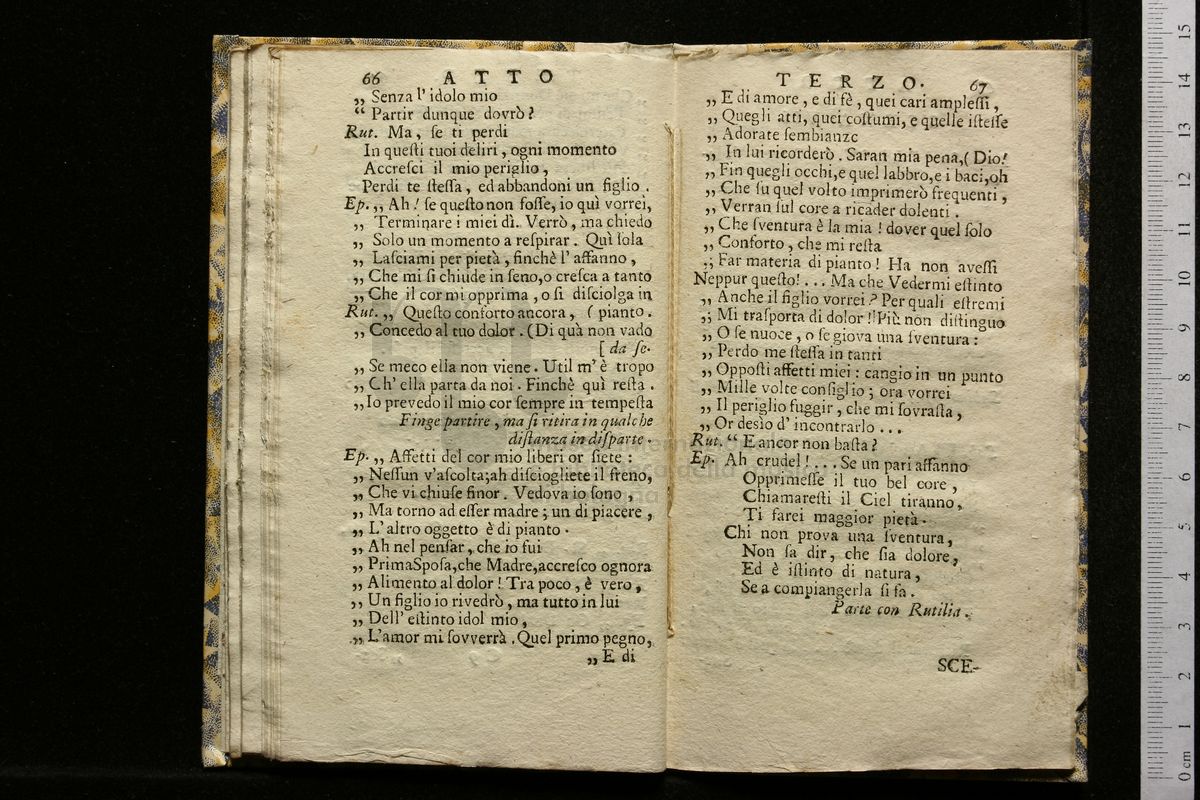 66 ATTO
„ Senza l' idolo mio
“ Partir dunque dovrò?
Rut. Ma, ſe ti perdi
In queſti tuoi deliri, ogni momento
Accreſci il mio periglio,
Perdi te ſteſſa, ed abbandoni un figlio.
Ep. „ Ah! ſe queſto non foſſe, io quì vorrei,
„ Terminare i miei dì. Verrò, ma chiedo
„ Solo un momento a reſpirar. Quì ſola
„ Laſciami per pietà, finchè l' affanno,
„ Che mi ſi chiude in ſeno, o creſca a tanto
„ Che il cor mi opprima, o ſi diſciolga in
Rut. „ Queſto conforto ancora, ( pianto.
„ Concedo al tuo dolor. (Di quà non vado
[ da ſe.
„ Se meco ella non viene. Util m' è tropo
„ Ch' ella parta da noi. Finchè quì reſta.
„ Io prevedo il mio cor ſempre in tempeſta
Finge partire, ma ſi ritira in qualche
diſtanza in diſparte.
Ep. „ Affetti del cor mio liberi or ſiete:
„ Neſſun v'aſcolta; ah diſciogliete il freno,
„ Che vi chiuſe finor. Vedova io ſono,
„ Ma torno ad eſſer madre; un di piacere,
„ L' altro oggetto è di pianto.
„ Ah nel penſar, che io fui
„ Prima Spoſa, che Madre, accreſco ognora
„ Alimento al dolor! Tra poco, è vero,
„ Un figlio io rivedrò, ma tutto in lui
„ Dell' eſtinto idol mio,
„ L'amor mi ſovverrà. Quel primo pegno,
„ E di
TERZO. 67
„ E di amore, e di fè, quei cari ampleſſi,
„ Quegli atti, quei coſtumi, e quelle iſteſſe
„ Adorate ſembianze
„ In lui ricorderò. Saran mia pena, ( Dio!
„ Fin quegli occhi, e quel labbro, e i baci, oh
„ Che ſu quel volto imprimerò frequenti,
„ Verran ſul core a ricader dolenti.
„ Che ſventura è la mia! dover quel ſolo
„ Conforto, che mi reſta
„ Far materia di pianto! Ha non aveſſi
Neppur queſto!... Ma che Vedermi eſtinto
„ Anche il figlio vorrei? Per quali eſtremi
„ Mi traſporta di dolor! Più non diſtinguo
„ O ſe nuoce, o ſe giova una ſventura:
„ Perdo me ſteſſa in tanti
„ Oppoſti affetti miei: cangio in un punto
„ Mille volte conſiglio; ora vorrei
„ Il periglio fuggir, che mi ſovraſta,
„ Or desìo d' incontrarlo...
Rut. “ E ancor non baſta?
Ep. Ah crudel!... Se un pari affanno
Opprimeſſe il tuo bel core,
Chiamareſti il Ciel tiranno,
Ti farei maggior pietà.
Chi non prova una ſventura,
Non ſa dir, che ſia dolore,
Ed è iſtinto di natura,
Se a compiangerla ſi fa.
Parte con Rutilia.
SCE-
0 cm 1 2 3 4 5 6 7 8 9 10 11 12 13 14 15